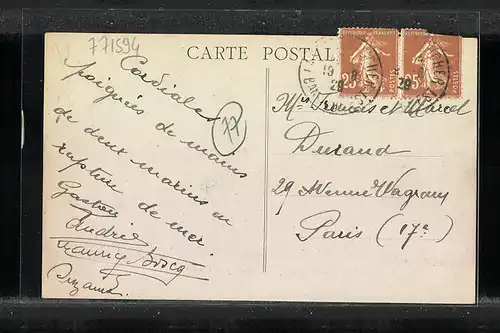 771594
CARTE POSTALE
Cordiales
poignées de mains
de deux marins en
rupture de mer.
Gaston
André
Suzanne
77
REPUBLIQUE FRANCAISE
25
POSTES
25
POSTES
19
28
et Marcel
Durand
29 Avenue Wagram
Paris (17e)